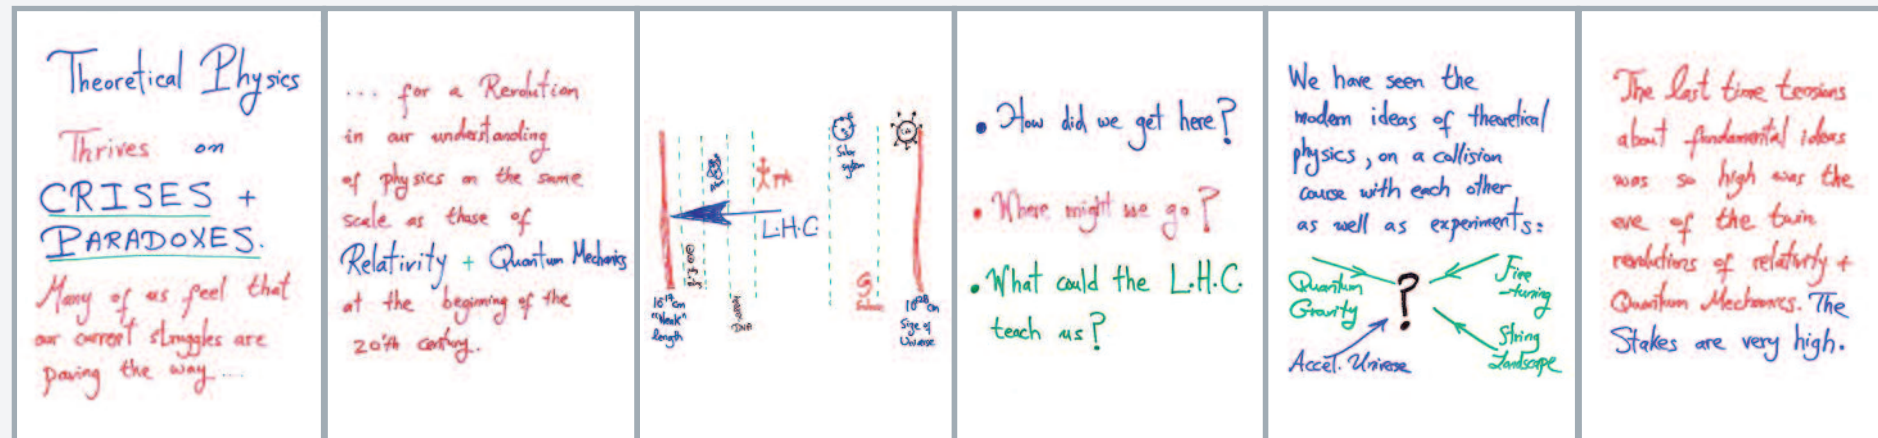 Theoretical Physics
Thrives on
CRISES +
PARADOXES.
Many of us feel that
our current struggles are
paving the way ....
... for a Revolution
in our understanding
of physics on the same
scale as those of
Relativity + Quantum Mechanics
at the beginning of the
20th century.
Solar
system
L.H.C.
10⁻¹⁷cm
"Weak"
length
DNA
10²⁸ cm
Size of
Universe
• How did we get here?
• Where might we go?
• What could the L.H.C.
teach us?
We have seen the
modern ideas of theoretical
physics, on a collision
course with each other
as well as experiments:
Quantum
Gravity
?
Fine
-tuning
Accel. Universe
String
Landscape
The last time tensions
about fundamental ideas
was so high was the
eve of the twin
revolutions of relativity +
Quantum Mechanics. The
Stakes are very high.